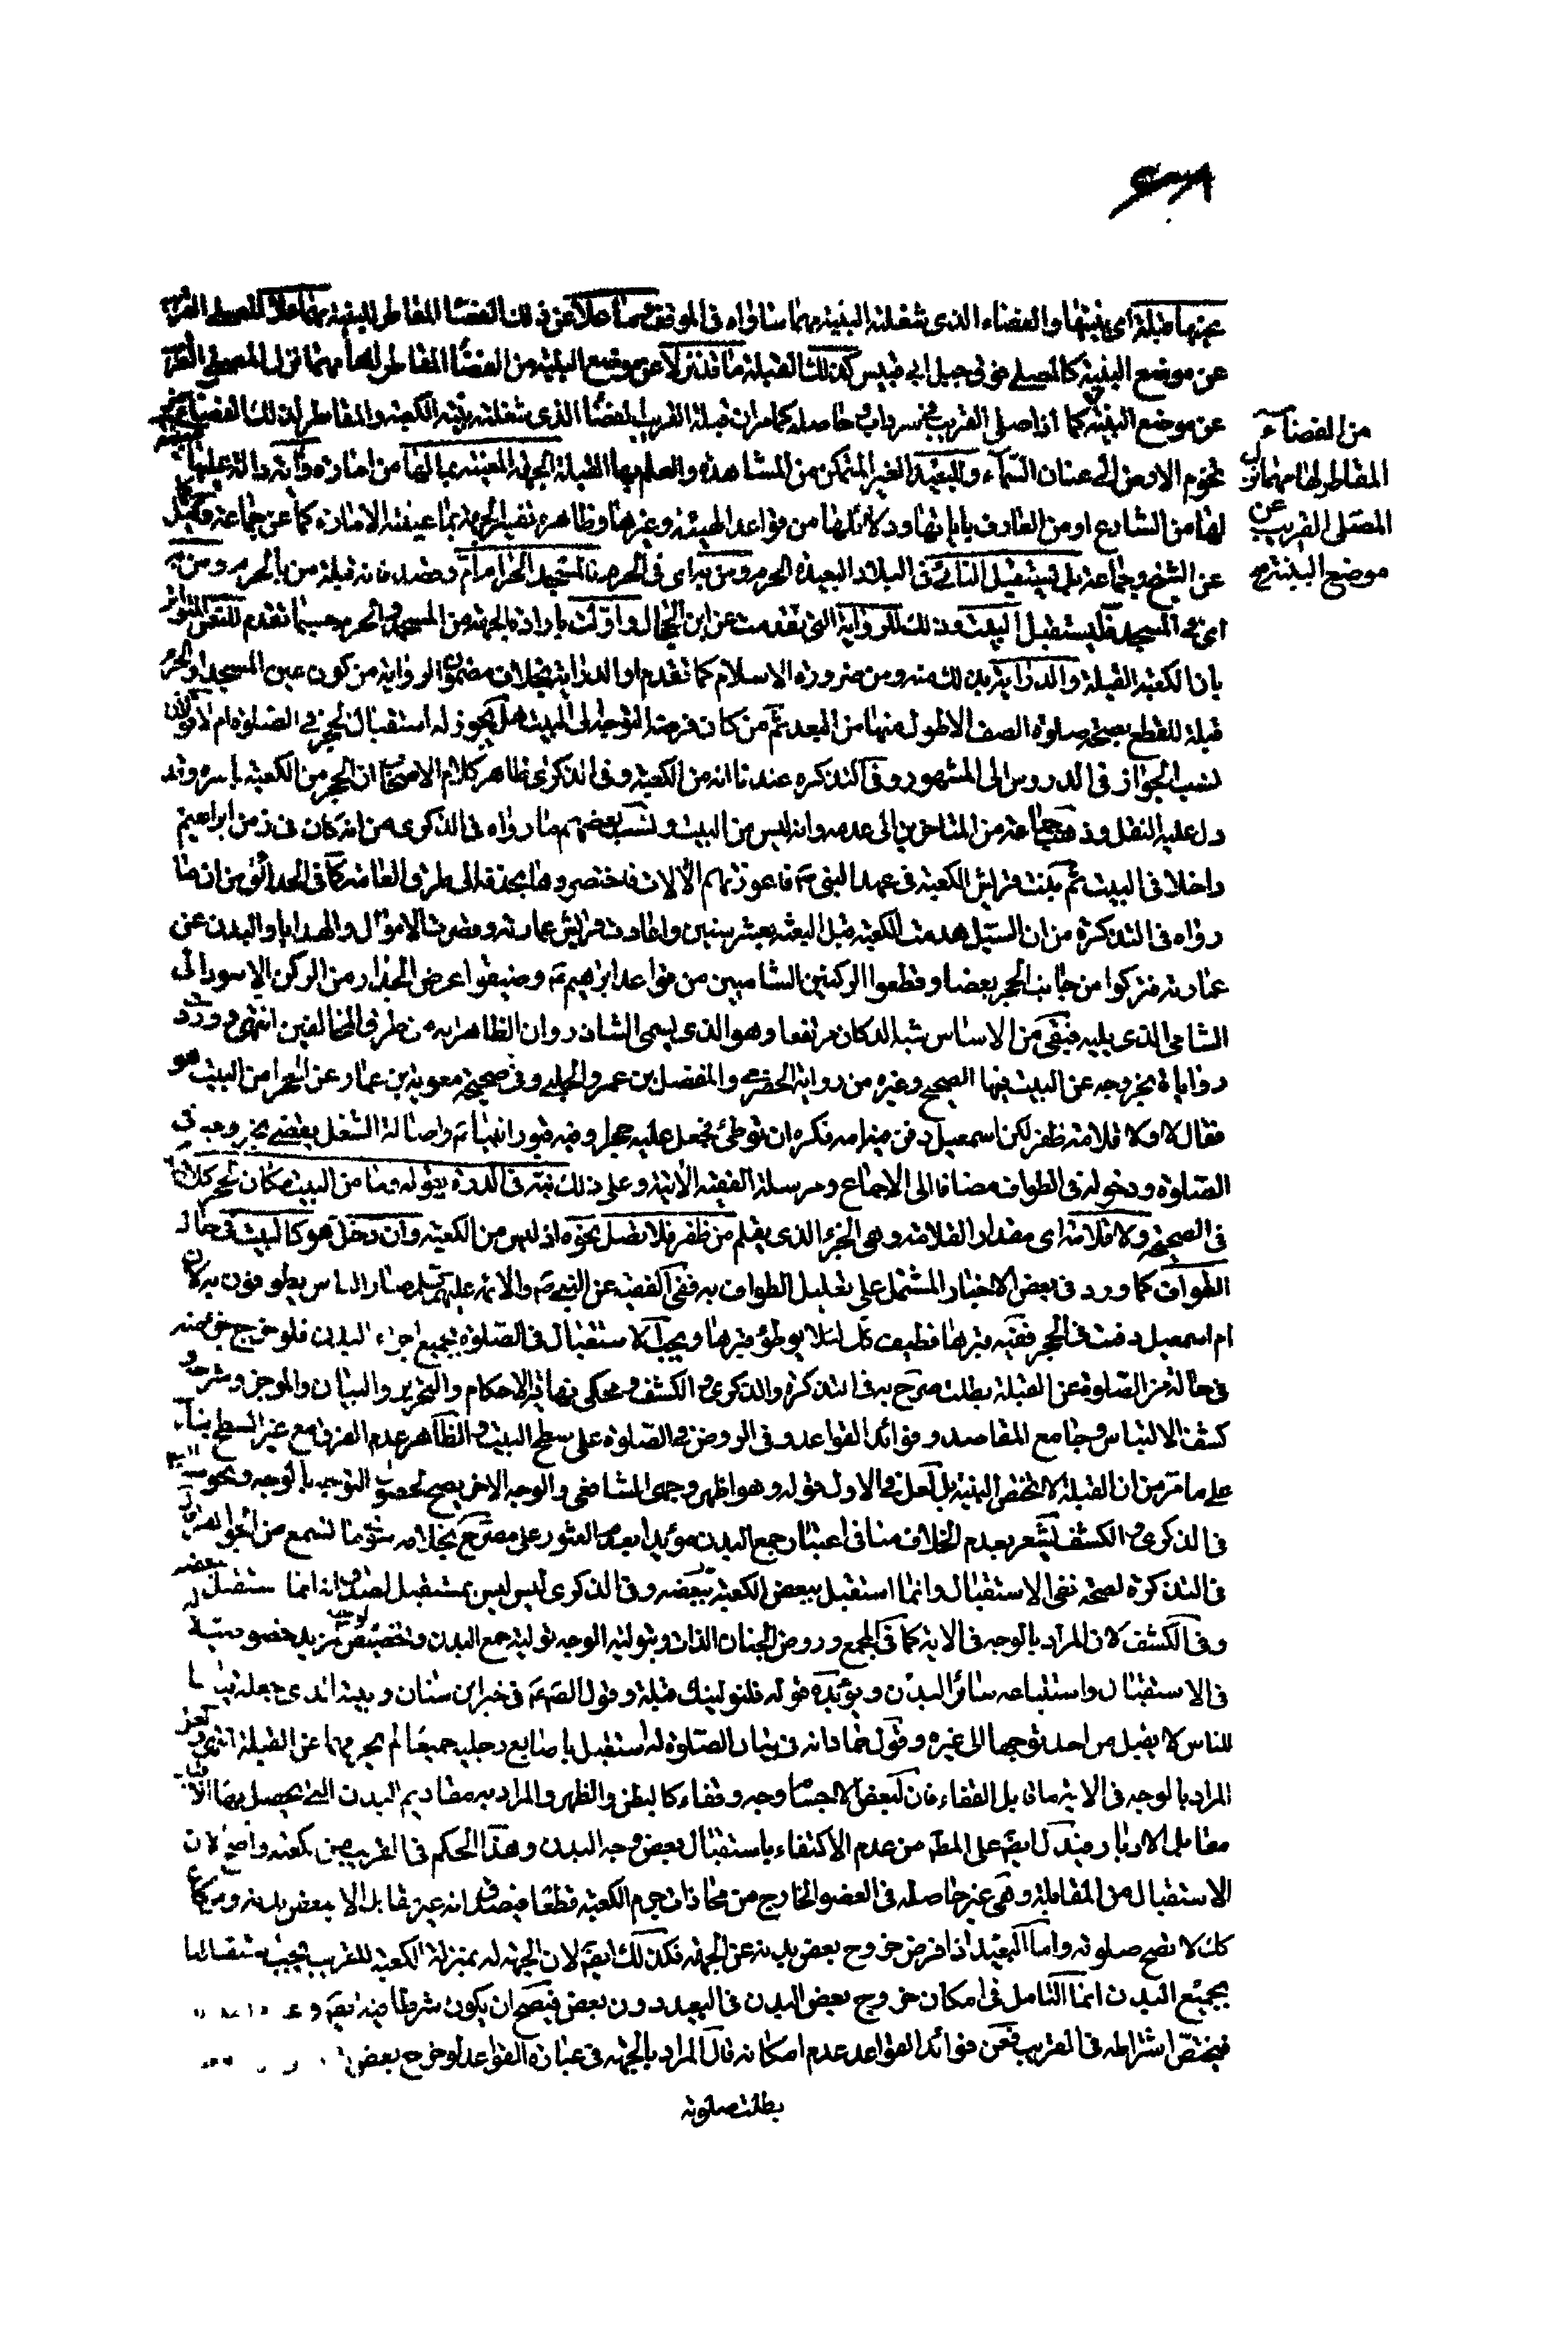 عن موضع البنية كالمصلي فوق جبل ابي قبيس كذلك القبلة ما قد نزلا عن موضع البنية من الفضا المقاطر لها مهما نزل المصلي القريب
عن موضع البنية كما اذا صلى القريب في سرداب حاصله كما مر ان قبلة القريب الفضا الذي شغلته بنية الكعبة والمقاطر لذلك الفضا
تخوم الارض الى عنان السماء وللبعيد الغير المتمكن من المشاهدة والعلم بها القبلة الجهة المعينة بمالها من امارة دالة عليها
لها من الشارع او من العارف باياتها ودلائلها من قواعد الهيئة وغيرها وظاهره تفسير الجهة بما عينته الامارة كما عن جماعة وقيل
عن الشيخ وجماعة بل يستقبل النائي في البلاد البعيدة الحرم ومن به اى في الحرم فالمسجد الحرام ام وقصد فانه قبلة من بالحرم ومن به
اى في المسجد فليستقبل البيت وذلك للرواية التي تقدمت عن ابن الجمال واولت بارادة الجهة من المسجد والحرم حسبما تقدم للنص المتواتر
بان الكعبة القبلة والدراية بذلك منه ومن ضرورة الاسلام كما تقدم او الدراية بخلاف مضمون الرواية من كون عين المسجد او الحرم
قبلة للقطع بصحة صلوة الصف الاطول منها من البعد ثم من كان فرضه التوجه الى البيت هل يجوز له استقبال الحجر في الصلوة ام لا قولان
نسب الجواز في الدروس الى المشهور وفي التذكرة عندنا انه من الكعبة وفي الذكرى ظاهر كلام الاصحاب ان الحجر من الكعبة باسره وقد
دل عليه النقل وذهب جماعة من المتاخرين الى عدمه وانه ليس من البيت ونسب بعضهم ما رواه في الذكرى من انه كان في زمن ابراهيم
داخلا في البيت ثم بنت قريش الكعبة في عهد النبي ص فاعوزتهم الالات فاختصروها بحذفه الى طرق العامة كما في الحدائق من ان ما
رواه في التذكرة من ان السيل هدمت الكعبة قبل البعثة بعشر سنين واعادت قريش عمارته وقصرت الاموال والهدايا والبدن عن
عمارته فتركوا من جانب الحجر بعضا وقطعوا الركنين الشاميين من قواعد ابراهيم ع وضيقوا عرض الجدار من الركن الاسود الى
الشامي الذي يليه فبقي من الاساس شبه الدكان مرتفعا وهو الذي يسمى الشاذروان الظاهر انه من طرق المخالفين انتهى وورد
روايات بخروجه عن البيت فيها الصحيح وغيره من رواية الحضرمي والمفضل بن عمر والحلبي وفي صحيحة معوية بن عمار عن الحجر امن البيت هو
فقال لا ولا قلامة ظفر لكن اسمعيل دفن فيه امه فكره ان توطئ فجعل عليه حجرا وفيه قبور انبياء ثم واصالة الشغل يقتضي خروجه في
الصلوة ودخوله في الطواف مضافا الى الاجماع ومرسلة الفقيه الاتية وعلى ذلك نبه في الدرة بقوله وما من البيت مكان الحجر كلا
في الصحيحة ولا قلامة اى مقدار القلامة وهي الجزء الذي يقلم من ظفر فلا تصل نحوه اذ ليس من الكعبة وان دخل هو كالبيت في حال
الطواف كما ورد في بعض الاخبار المشتمل على تعليل الطواف به ففي الفقيه عن النبي ص والائمة عليهم السلم صار الناس يطوفون به لان
ام اسمعيل دفنت في الحجر ففيه قبرها فطيف كك لئلا يوطؤ قبرها ويجب الاستقبال في الصلوة بجميع اجزاء البدن فلو خرج جزء منه
في حالة من الصلوة عن القبلة بطلت صرح به في التذكرة والذكرى والكشف ومحكي نهاية الاحكام والتحرير والبيان والموجز وشرحه
كشف الالتباس وجامع المقاصد وفوائد القواعد وفي الروض في الصلوة على سطح البيت والظاهر عدم الفرق مع غير السطح بناء
على ما مر من ان القبلة لا تختص البنية بل لعل في الاول قوله وهو اظهر وجهي الشافعي والوجه الاخر يصح لحصول التوجه بالوجه ونحوه
في الذكرى والكشف ليشعر بعدم الخلاف منا في اعتبار جمع البدن مؤيدا بعدم العثور على مصرح بخلافه
في التذكرة لصحة نفي الاستقبال وانما استقبل ببعض الكعبة بعضه وفي الذكرى ليس بمستقبل لصدق انه انما استقبل بعضه
وفي الكشف لان المراد بالوجه في الاية كما في المجمع وروض الجنان الذات وبتولية الوجه تولية جمع البدن وتخصيص الوجه لمزيد خصوصيته
في الاستقبال واستتباعه سائر البدن ويؤيده قوله فلنولينك قبلة وقول الصادق ع في خبر ابن سنان وبيته الذي جعله قياما
للناس لا يقبل من احد توجها الى غيره وقول حماد انه في بيان الصلوة له استقبل باصابع رجليه جميعا لم يحرفهما عن القبلة انتهى
المراد بالوجه في الاية ما قابل القفاء فان لبعض الاجسام وجه وقفاء كالبطن والظهر والمراد به مقاديم البدن التي يحصل بها
مقابل الادبار فيدل ايضا على المط من عدم الاكتفاء باستقبال بعض وجه البدن وهذا الحكم في القريب من الكعبة واضح لان
الاستقبال من المقابلة وهي غير حاصلة في العضو الخارج من محاذات جرم الكعبة قطعا فيصدق انه غير مقابل الا ببعض بدنه
كك لا تصح صلوته واما البعيد اذا فرض خروج بعض بدنه عن الجهة فكذلك ايضا لان الجهة له بمنزلة الكعبة للقريب فيجب استقبالها
بجميع البدن انما التامل في امكان خروج بعض البدن في البعيد دون بعض فيصح ان يكون شرطا فيه ايضا
فيختص اشتراطه في القريب فعن فوائد القواعد عدم امكانه قال المراد بالجهة في عبارة القواعد لو خرج بعض
بطلت صلوته
من الفضاء
المقاطر لها مهما نزل
المصلى القريب عن
موضع البنية صح